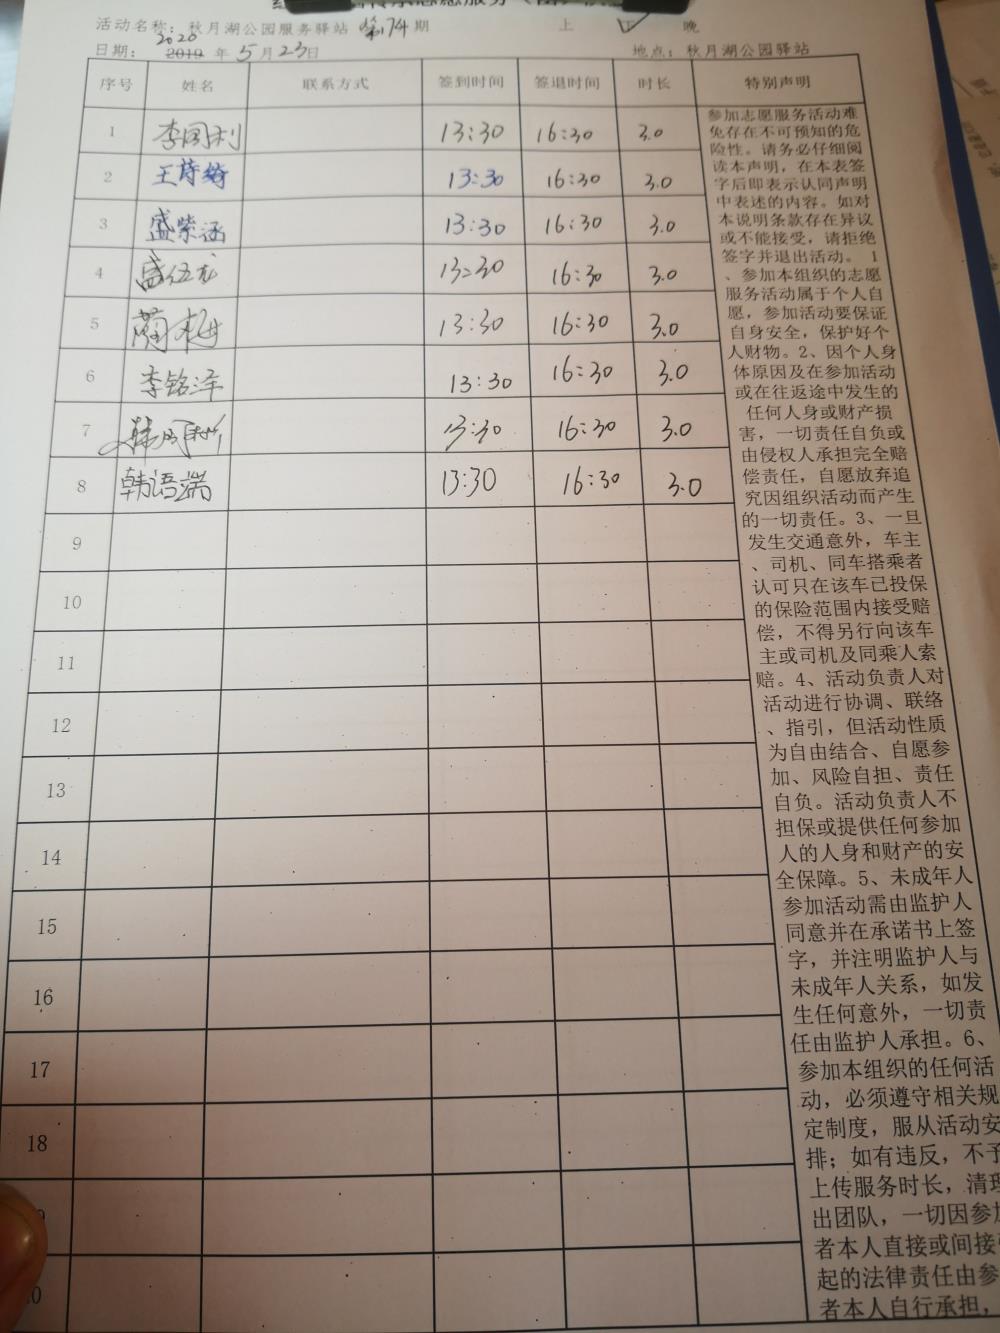 活动名称：秋月湖公园服务驿站 第74期 上 下 晚
2020
日期： 2019 年 5 月 23 日 地点：秋月湖公园驿站
序号 姓名 联系方式 签到时间 签退时间 时长 特别声明
1 李国利 13:30 16:30 3.0
2 王诗绮 13:30 16:30 3.0
3 盛紫涵 13:30 16:30 3.0
4 盛伍龙 13:30 16:30 3.0
5 13:30 16:30 3.0
6 李铭泽 13:30 16:30 3.0
7 韩 13:30 16:30 3.0
8 韩语端 13:30 16:30 3.0
9
10
11
12
13
14
15
16
17
18
9
0
参加志愿服务活动难
免存在不可预知的危
险性。请务必仔细阅
读本声明，在本表签
字后即表示认同声明
中表述的内容。如对
本说明条款存在异议
或不能接受，请拒绝
签字并退出活动。 1
、参加本组织的志愿
服务活动属于个人自
愿，参加活动要保证
自身安全，保护好个
人财物。2、因个人身
体原因及在参加活动
或在往返途中发生的
任何人身或财产损
害，一切责任自负或
由侵权人承担完全赔
偿责任，自愿放弃追
究因组织活动而产生
的一切责任。3、一旦
发生交通意外，车主
、司机、同车搭乘者
认可只在该车已投保
的保险范围内接受赔
偿，不得另行向该车
主或司机及同乘人索
赔。4、活动负责人对
活动进行协调、联络
、指引，但活动性质
为自由结合、自愿参
加、风险自担、责任
自负。活动负责人不
担保或提供任何参加
人的人身和财产的安
全保障。5、未成年人
参加活动需由监护人
同意并在承诺书上签
字，并注明监护人与
未成年人关系，如发
生任何意外，一切责
任由监护人承担。6、
参加本组织的任何活
动，必须遵守相关规
定制度，服从活动安
排；如有违反，不予
上传服务时长，清理
出团队，一切因参加
者本人直接或间接引
起的法律责任由参
者本人自行承担，